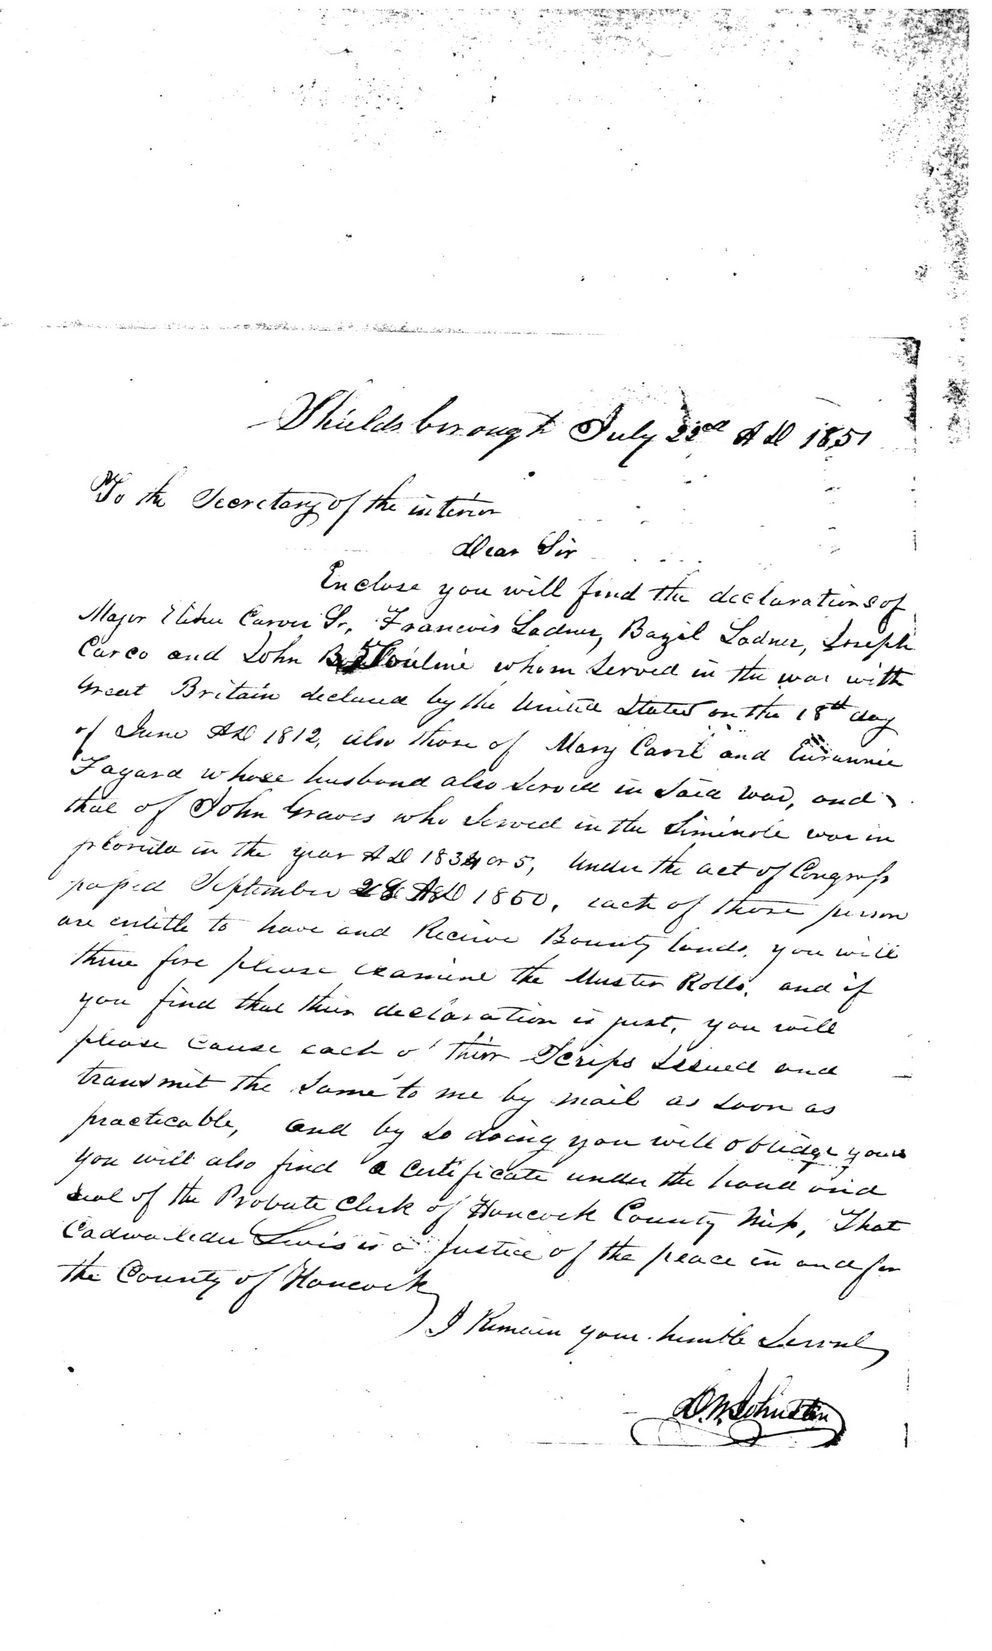 Shieldsborough July 22nd AD 1851
To the Secretary of the interior
Dear Sir
Enclose you will find the declarations of
Major Elihu Carver Sr, Francois Ladner, Bazil Ladner, Joseph
Carco and John whom served in the war with
Great Britain declared by the United States on the 18th day
of June AD 1812, also those of Mary and
Fagard whose husband also served in said war, and
that of John Graves who served in the Siminole war in
florida in the year AD 1834 or 5, under the act of Congress
passed September 28 AD 1850, each of those person
are entitle to have and Recieve Bounty lands, you will
there fore please examine the Muster Rolls, and if
you find that their declaration is just, you will
please cause each o' their Scrips Issued and
transmit the same to me by mail as soon as
practicable, and by so doing you will oblidge yours
you will also find a certificate under the hand and
seal of the Probate Clerk of Hancock County Miss, That
Cadwalleder Lewis is a Justice of the peace in and for
the County of Hancock
I Remain your humble Servnt
D. W. Johnston